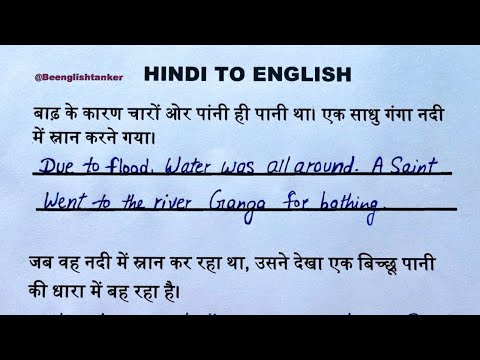 @Beenglishtanker HINDI TO ENGLISH
बाढ़ के कारण चारों ओर पांनी ही पानी था। एक साधु गंगा नदी
में स्नान करने गया।
Due to flood. Water was all around. A Saint
Went to the river Ganga for bathing.
जब वह नदी में स्नान कर रहा था, उसने देखा एक बिच्छू पानी
की धारा में बह रहा है।